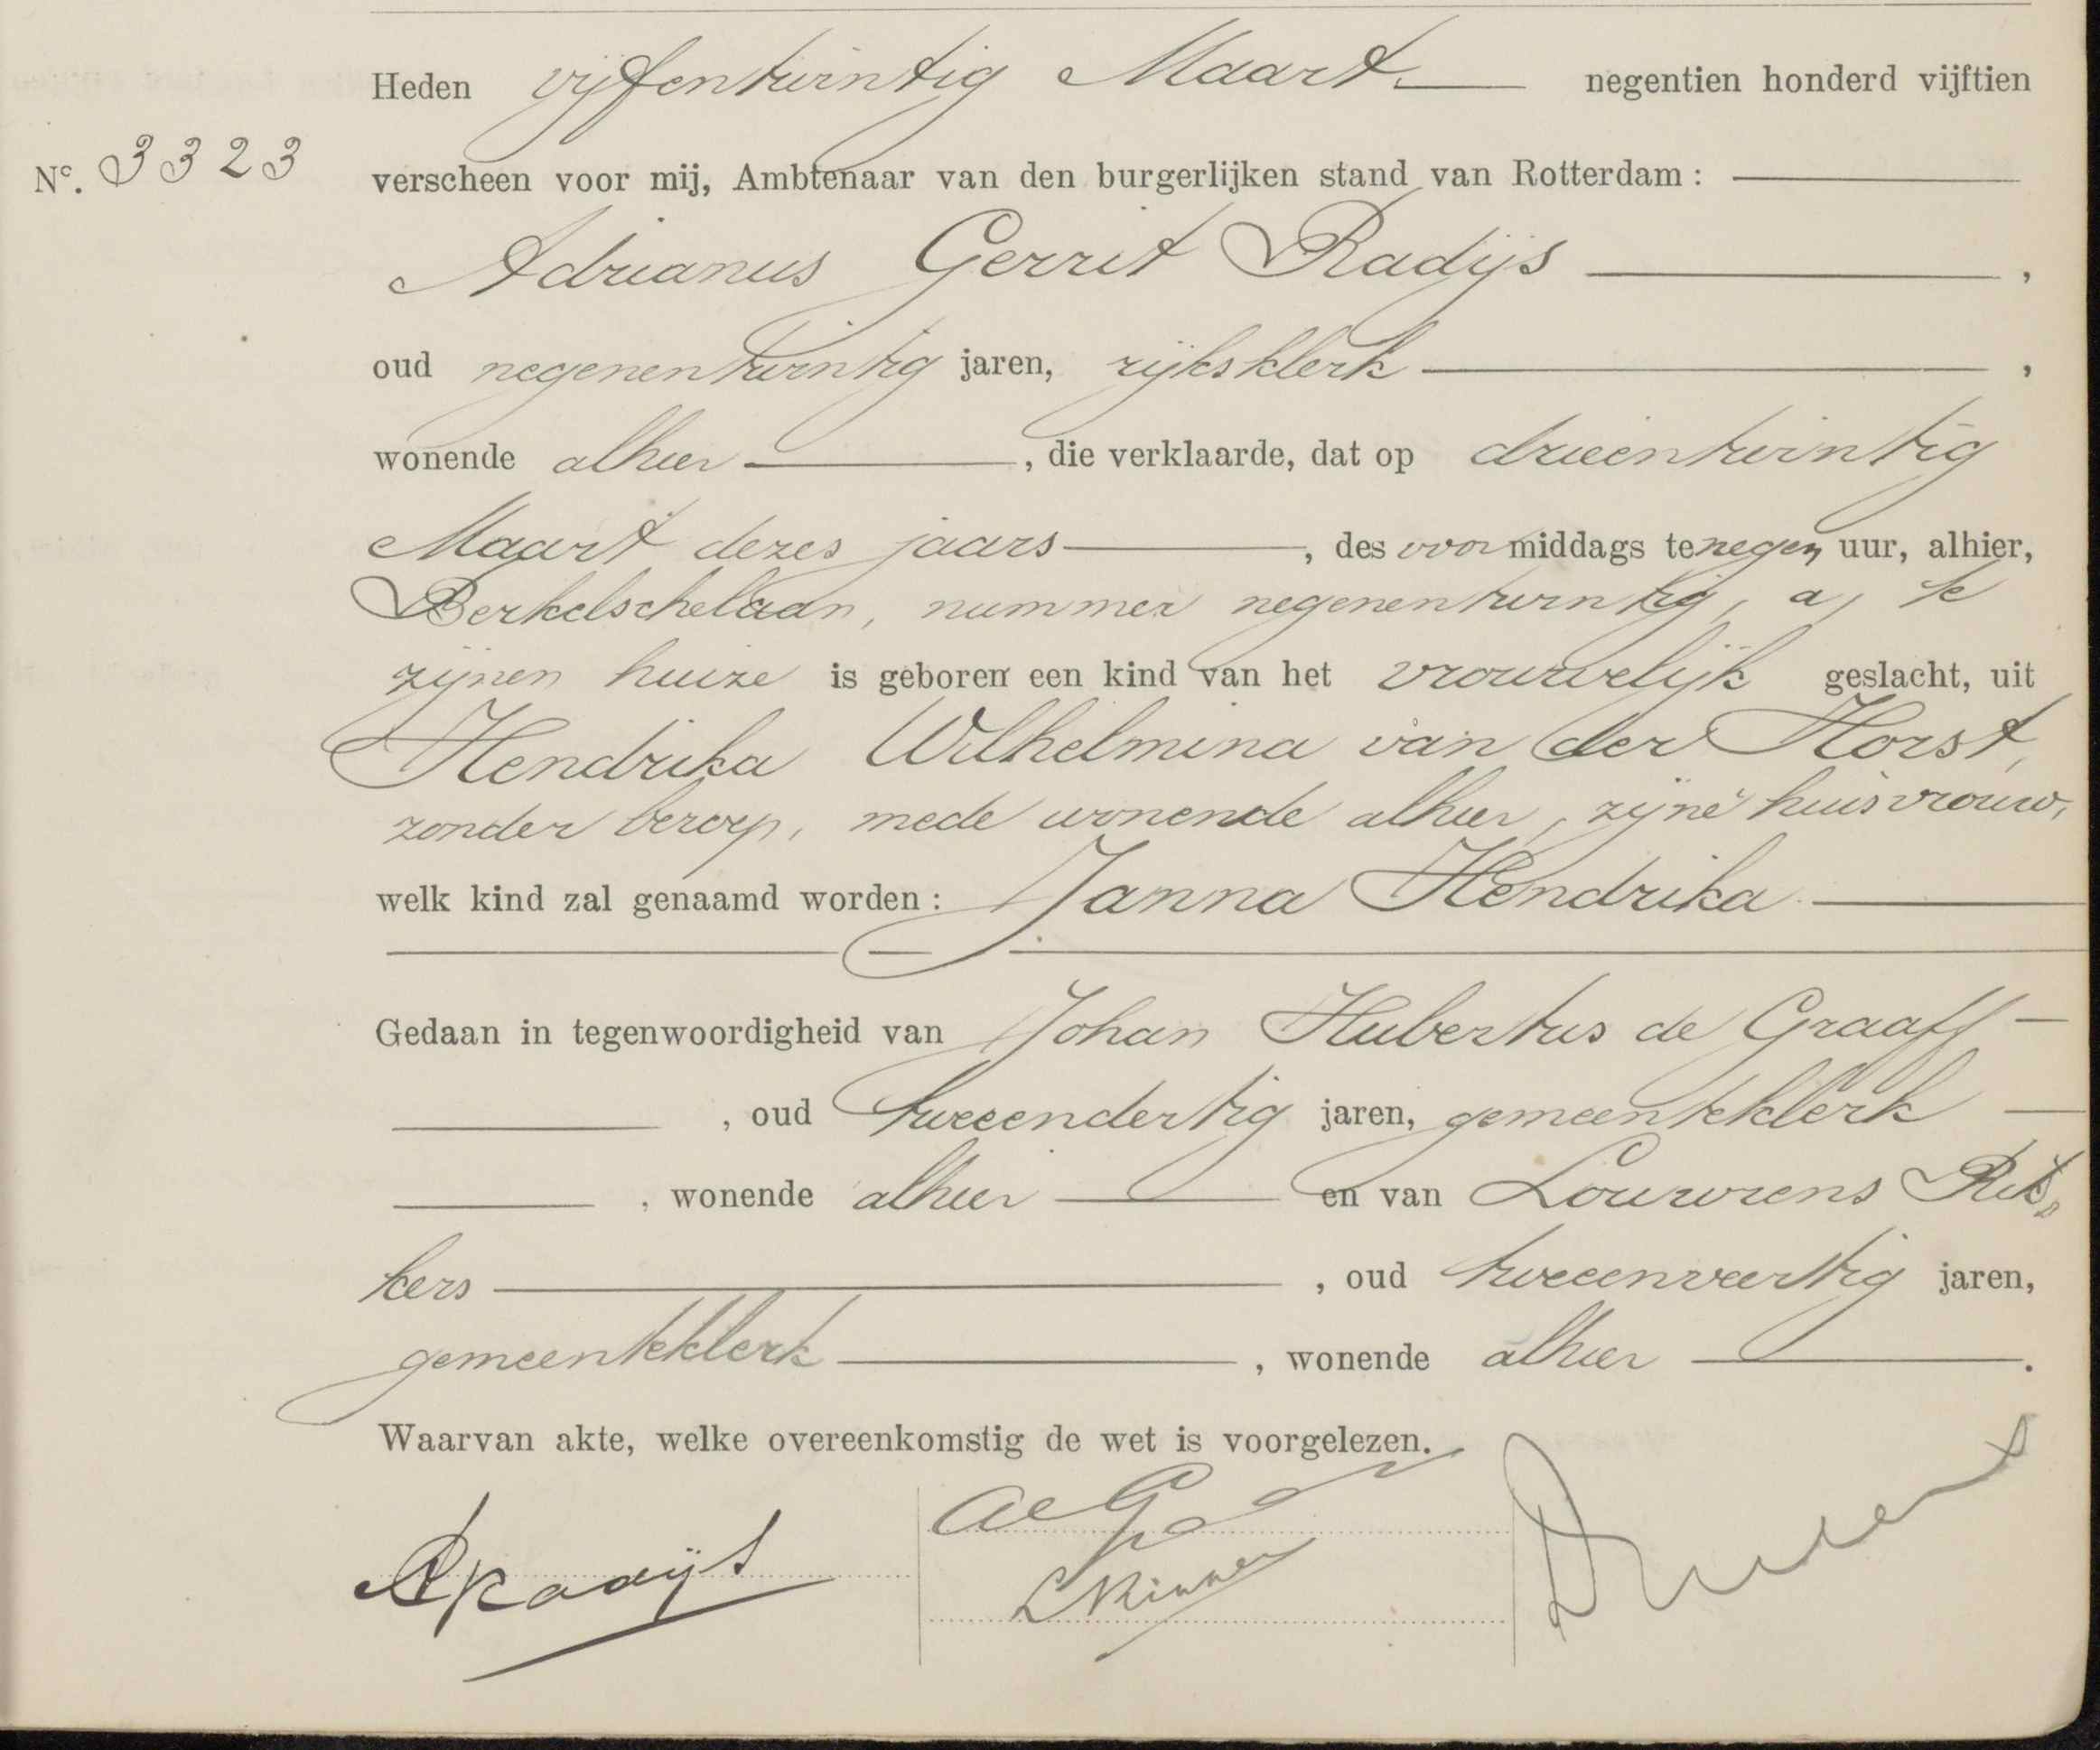 Heden vijfentwintig Maart negentien honderd vijftien
N°. 3323 verscheen voor mij, Ambtenaar van den burgerlijken stand van Rotterdam:
Adrianus Gerrit Radijs,
oud negenentwintig jaren, rijksklerk,
wonende alhier, die verklaarde, dat op drieentwintig
Maart dezes jaars, des voormiddags te negen uur, alhier,
Berkelschelaan, nummer negenentwintig, a, te
zijnen huize is geboren een kind van het vrouwelijk geslacht, uit
Hendrika Wilhelmina van der Horst,
zonder beroep, mede wonende alhier, zijne huisvrouw,
welk kind zal genaamd worden: Janna Hendrika
Gedaan in tegenwoordigheid van Johan Hubertus de Graaff
, oud tweeendertig jaren, gemeenteklerk
, wonende alhier en van Louwrens Rik„
kers, oud tweeenveertig jaren,
gemeenteklerk, wonende alhier.
Waarvan akte, welke overeenkomstig de wet is voorgelezen.
ARadijs